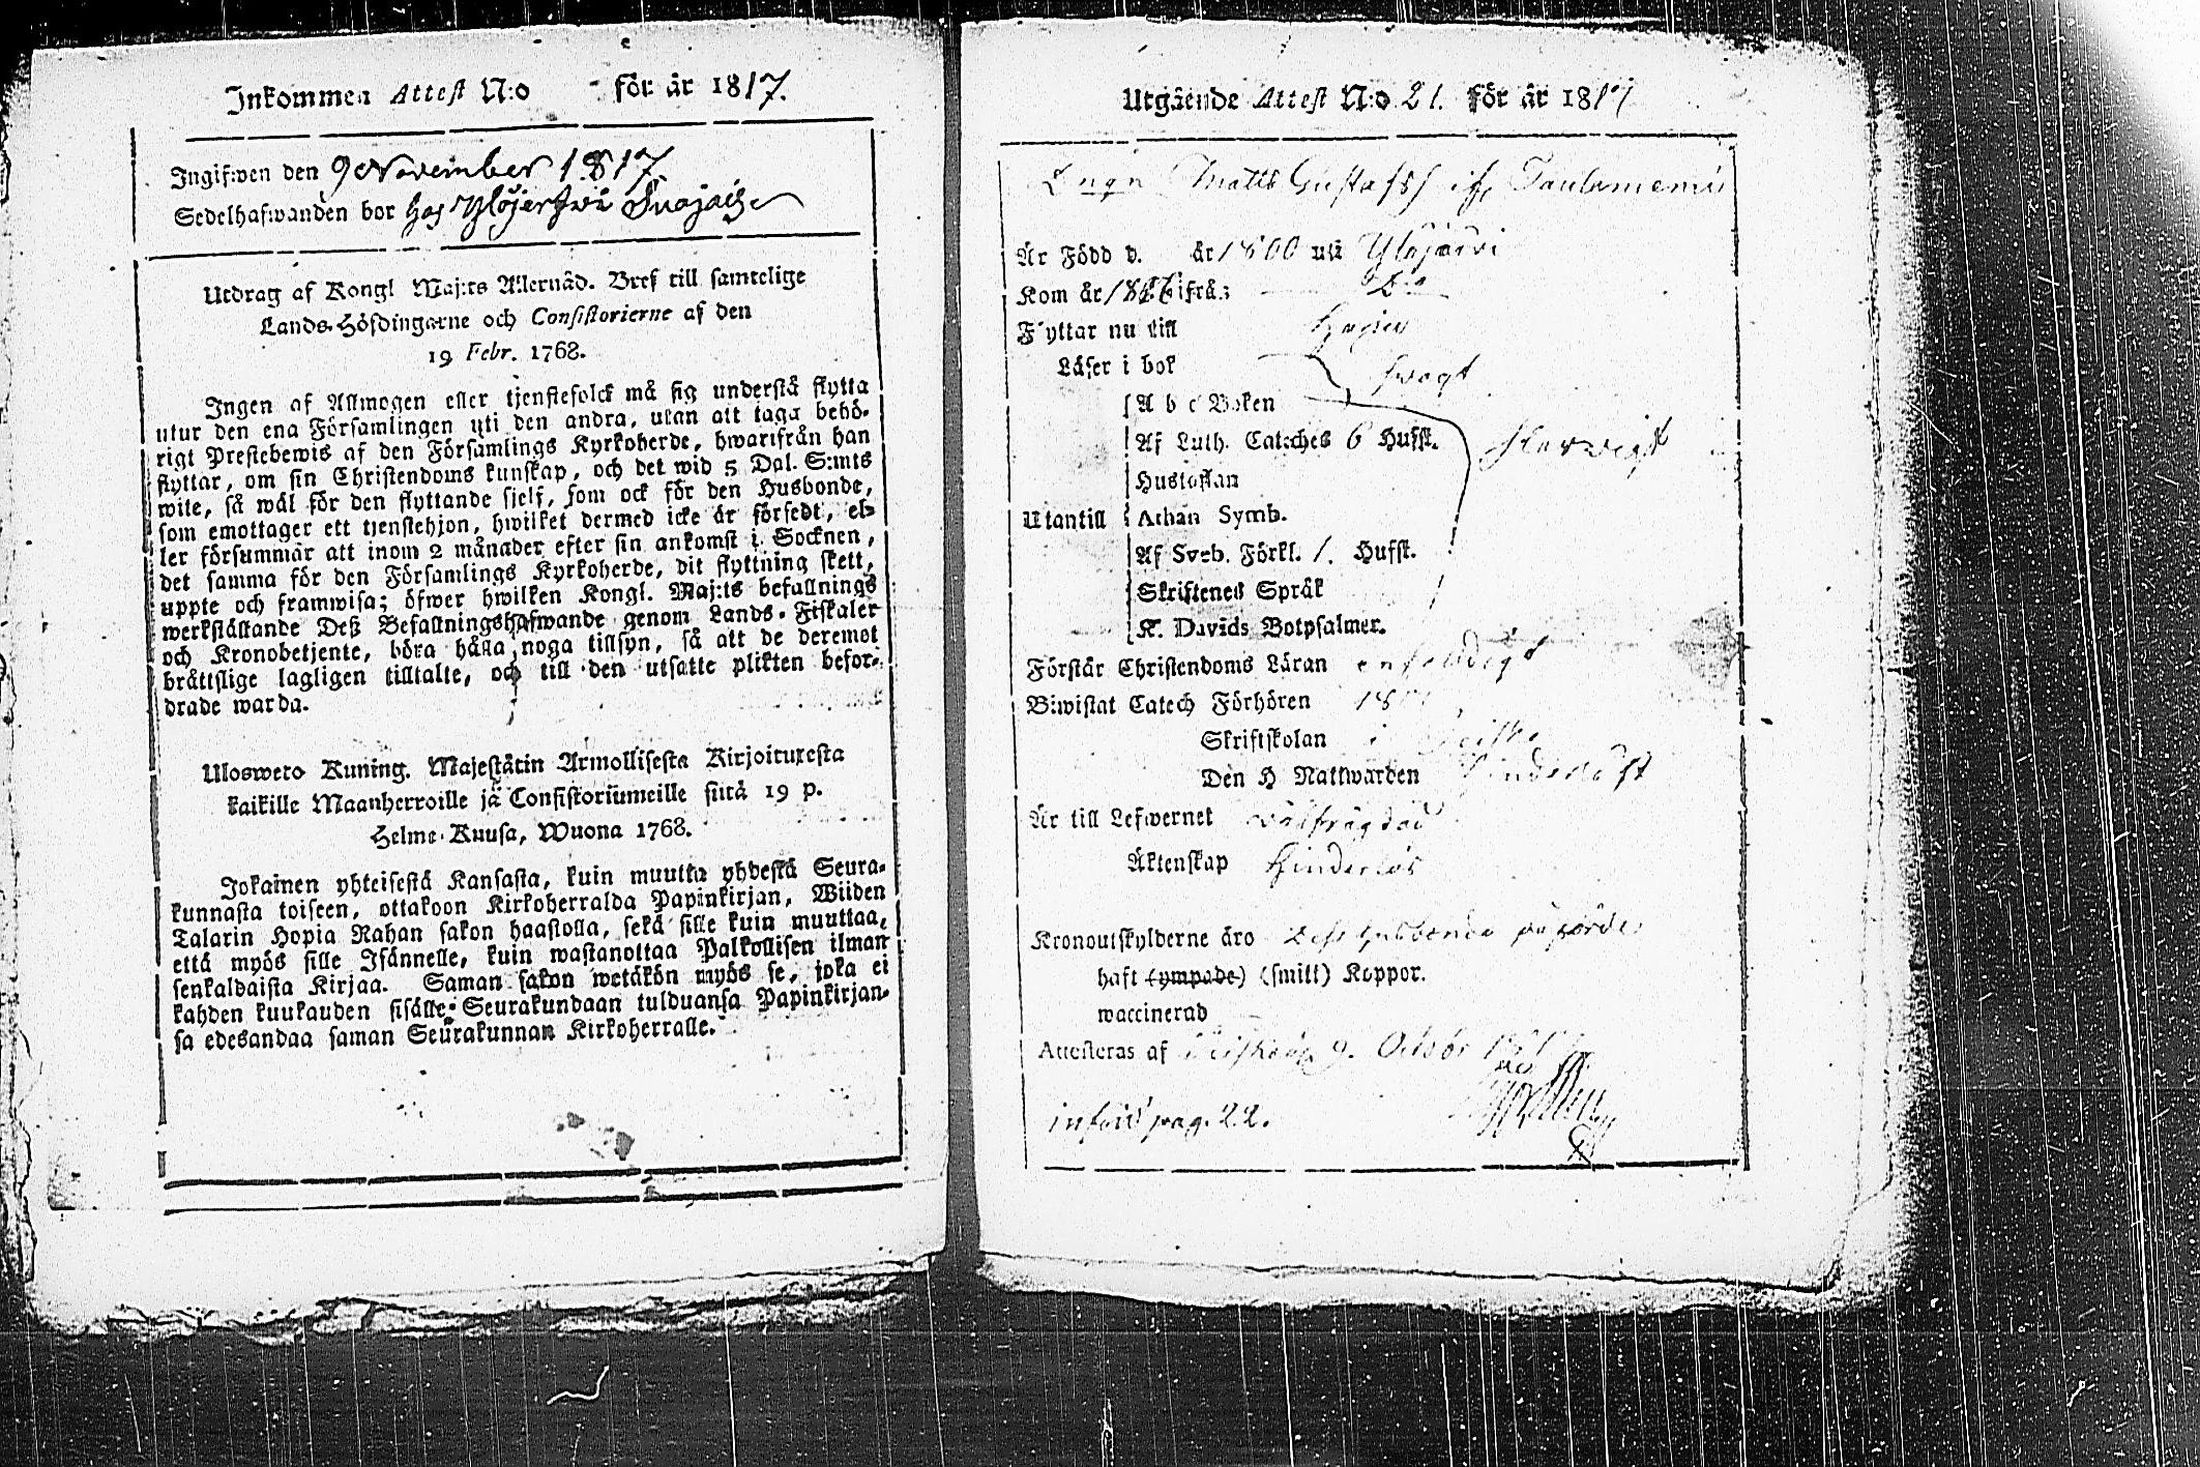 Inkommen Attest N:o för år 1817.
Ingifwen den 9 November 1817
Sedelhafwanden bor hos Ylöjerfwi
Utdrag af Kongl Maj:ts Allernåd. Bref till samtelige
Lands-Höfdingarne och Consistorierne af den
19 Febr. 1768.
Ingen af Allmogen eller tjenstefolck må sig understå flytta
utur den ena Församlingen uti den andra, utan att taga behö-
rigt Prestebewis af den Församlings Kyrkoherde, hwarifrån han
flyttar, om sin Christendoms kunskap, och det wid 5 Dal. S:mts
wite, så wäl för den flyttande sjelf, som ock för den Husbonde,
som emottager ett tjenstehjon, hwilket dermed icke är försedt, el-
ler försummar att inom 2 månader efter sin ankomst i Socknen,
det samma för den Församlings Kyrkoherde, dit flyttning skett,
uppte och framwisa; öfwer hwilken Kongl. Maj:ts befallnings
werkställande Deß Befallningshafwande genom Lands-Fiskaler
och Kronobetjente, böra hålla noga tillsyn, så att de deremot
bråttslige lagligen tilltalte, och till den utsatte plikten befor-
drade warda.
Ulosweto Kuning. Majestätin Armollisesta Kirjoituxesta
kaikille Maanherroille ja Consistoriumeille siitä 19 p.
Helme-Kuusa, Wuona 1768.
Jokainen yhteisestä Kansasta, kuin muutta yhdestä Seura-
kunnasta toiseen, ottakoon Kirkoherralda Papinkirjan, Wiiden
Talarin Hopia Rahan sakon haastolla, sekä sille kuin muuttaa,
että myös sille Isännelle, kuin wastanottaa Palkollisen ilman
senkaldaista Kirjaa. Saman sakon wetäkön myös se, joka ei
kahden kuukauden sisälle Seurakundaan tulduansa Papinkirjan-
sa edesandaa saman Seurakunnan Kirkoherralle.
Utgående Attest N:o 21. för år 1817
Matts Gustafss
Är Född d. år 1800 uti Ylöjärvi
Kom år ifrån
Flyttar nu till
Läser i bok swagt
A b c Boken
Af Luth. Cateches 6 Hufst.
Hustaflan
Utantill Athan Symb.
Af Sveb. Förkl. 1. Hufst.
Skriftenes Språk
K. Davids Botpsalmer.
Förstår Christendoms Läran enfaldigt
Biwistat Catech Förhören
Skriftskolan
Den H Nattwarden
Är till Lefwernet wälfrägdad
Äktenskap Hinderlös
Kronoutskylderne äro
haft (ympade) (smitt) Koppor.
waccinerad
Attesteras af 9.
införd pag. 22.